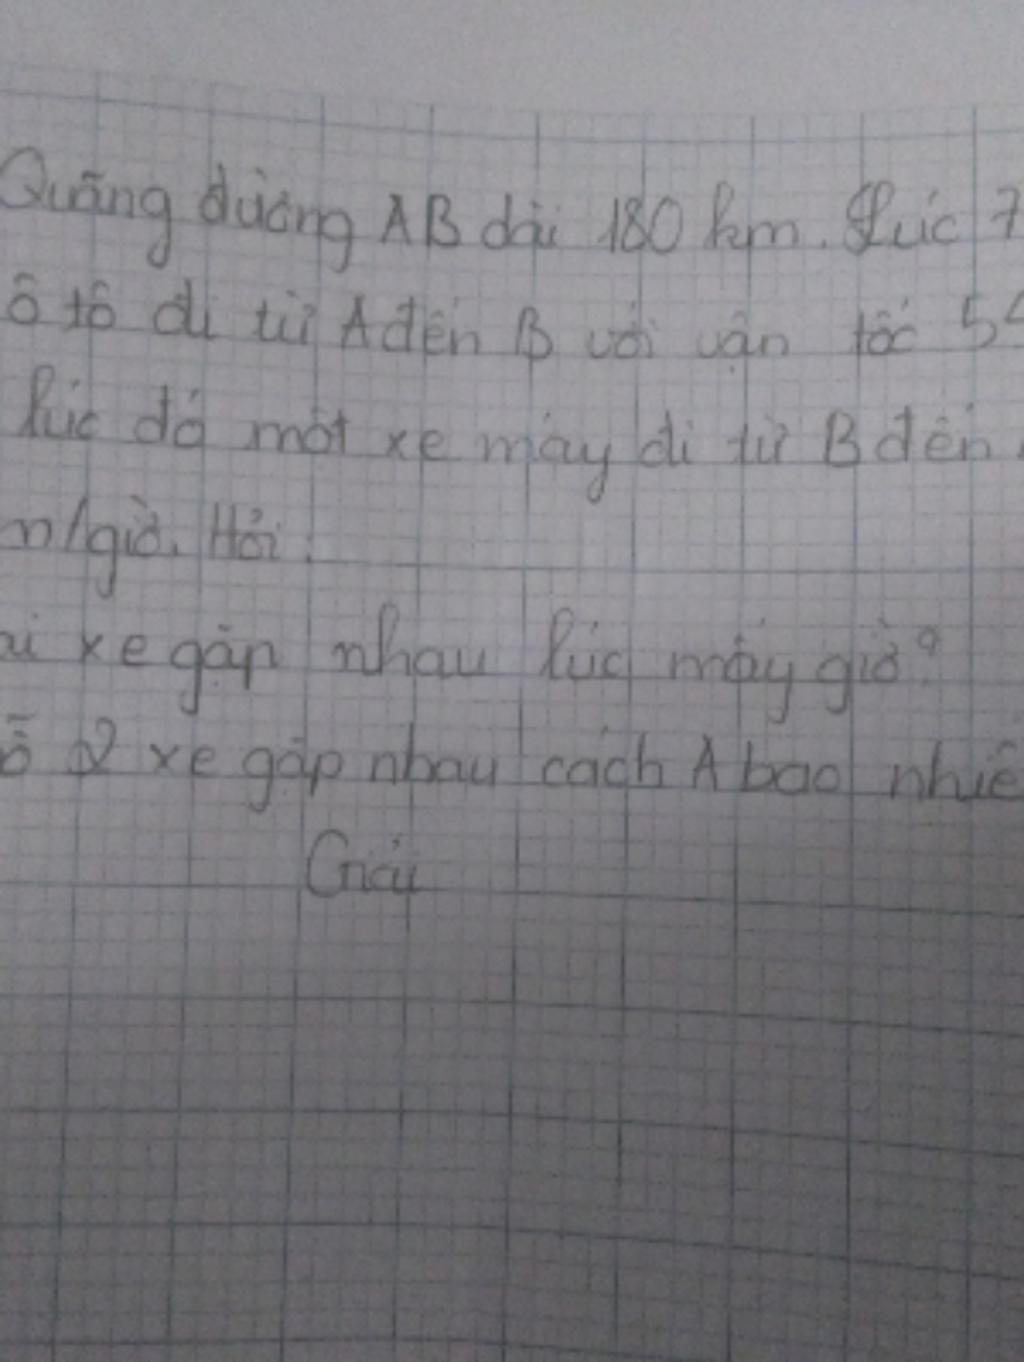 Quãng đường AB dài 180 km. Lúc 7
ô tô đi từ A đến B với vận tốc 54
lúc đó một xe máy đi từ B đến
m/giờ. Hỏi:
ai xe gặp nhau lúc mấy giờ?
ỗ 2 xe gặp nhau cách A bao nhiê
Giải